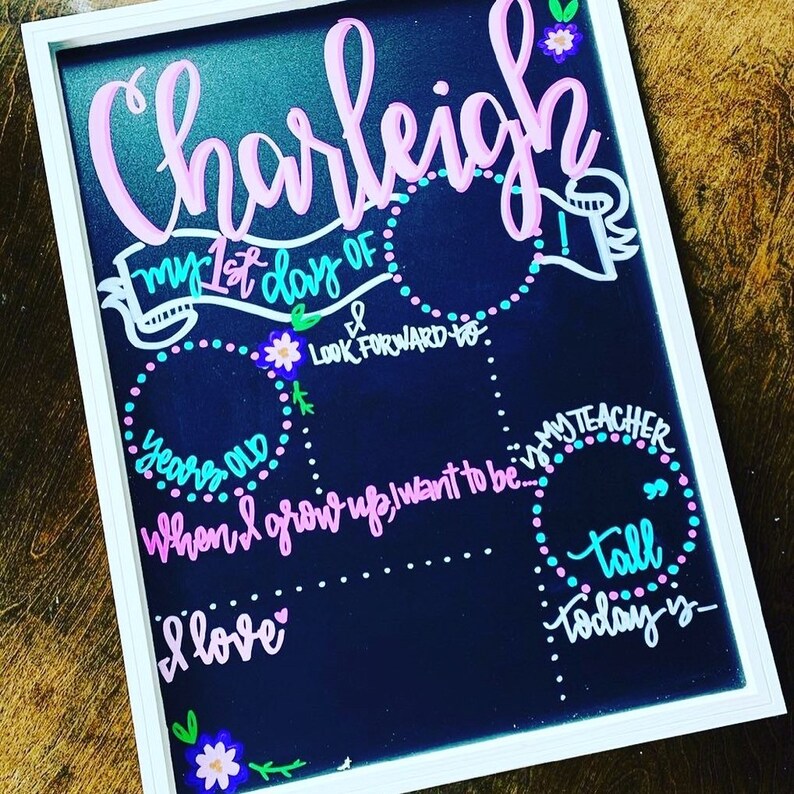 Charleigh
my 1st day of !
I
LOOK FORWARD to
years OLD
is MY TEACHER
When I grow up, I want to be...
"
tall
I love
today is_